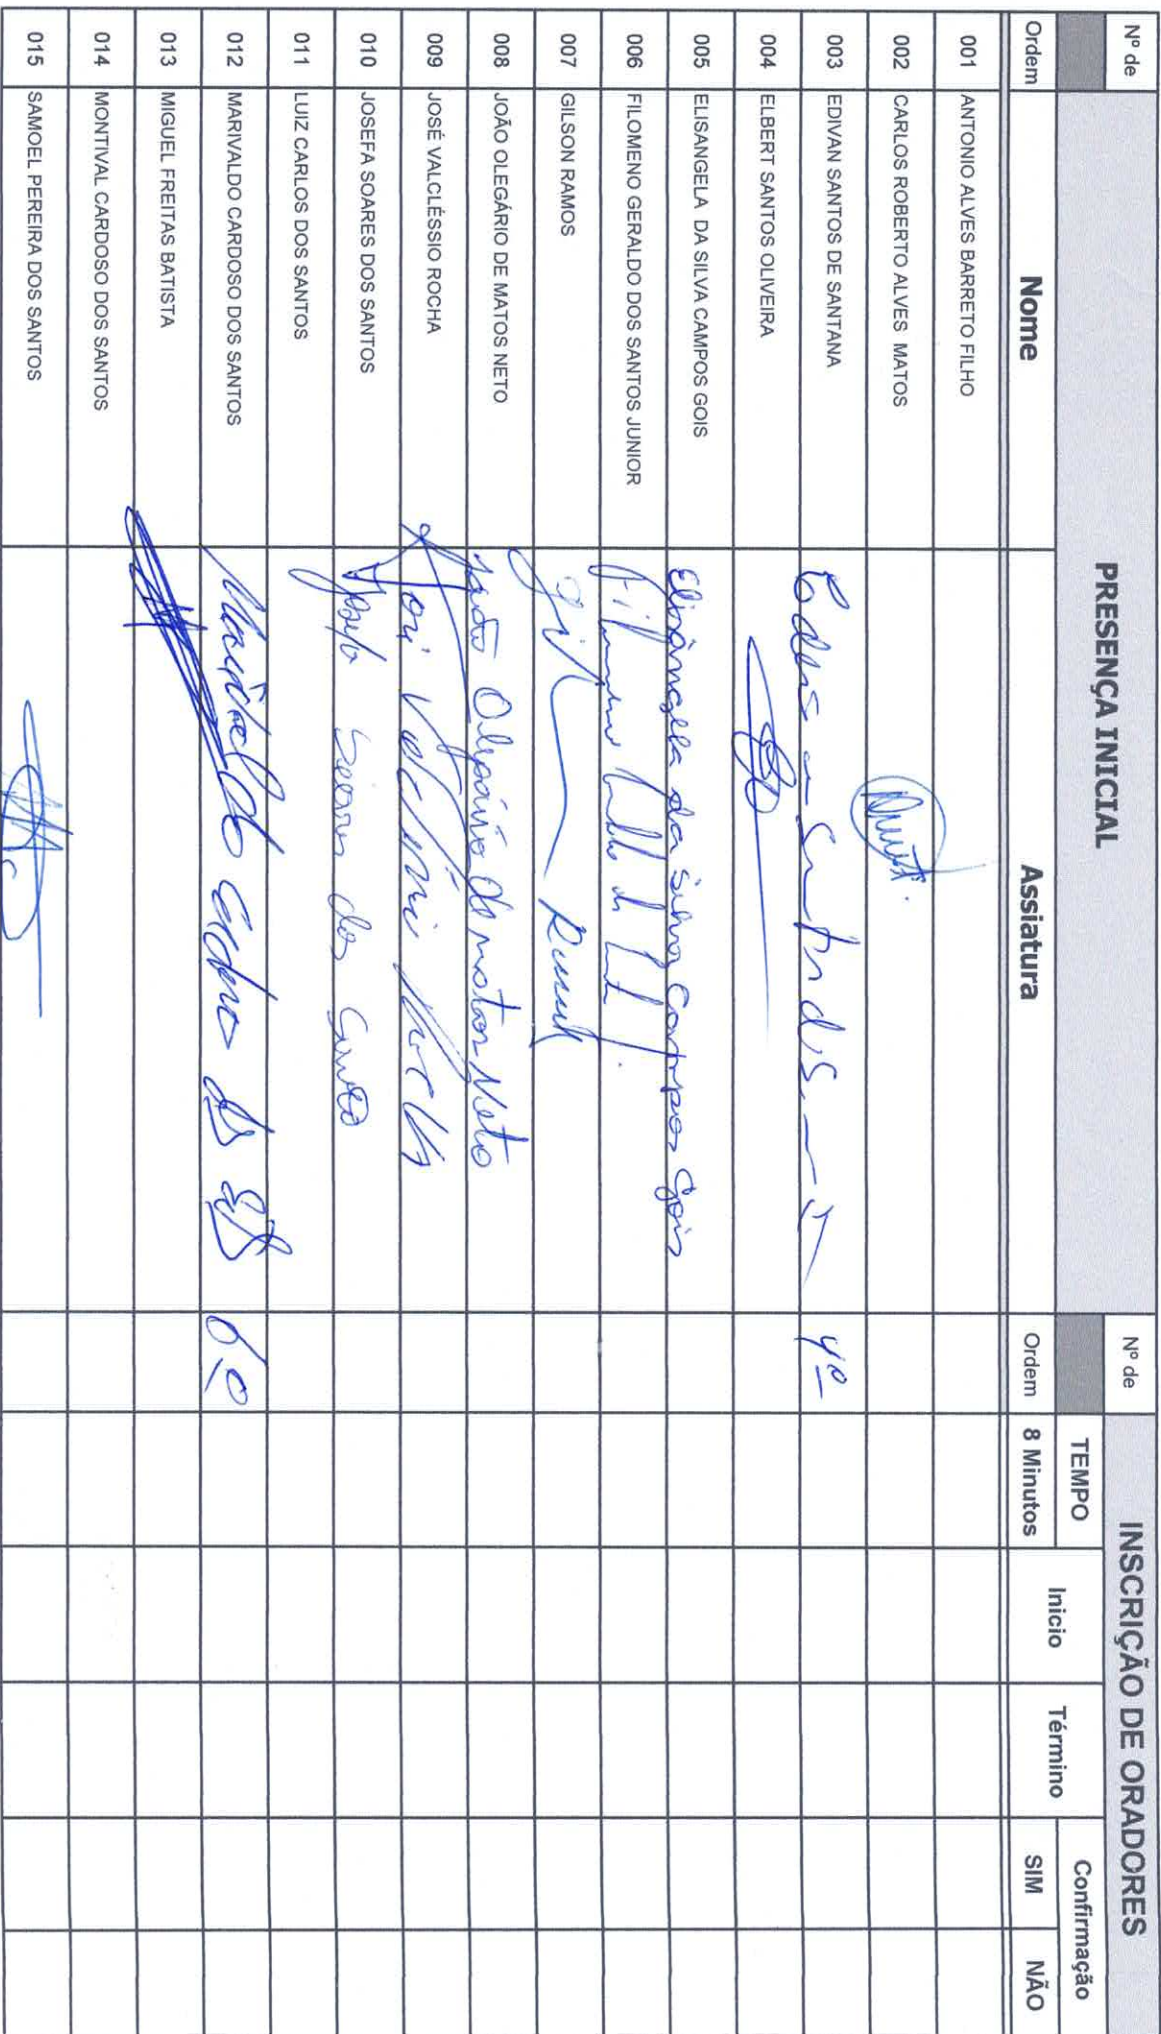 Nº de PRESENÇA INICIAL Nº de INSCRIÇÃO DE ORADORES
TEMPO Confirmação
Ordem Nome Assiatura Ordem 8 Minutos Inicio Término SIM NÃO
001 ANTONIO ALVES BARRETO FILHO
002 CARLOS ROBERTO ALVES MATOS
003 EDIVAN SANTOS DE SANTANA 4º
004 ELBERT SANTOS OLIVEIRA
005 ELISANGELA DA SILVA CAMPOS GOIS Elisângela da Silva Campos Gois
006 FILOMENO GERALDO DOS SANTOS JUNIOR
007 GILSON RAMOS
008 JOÃO OLEGÁRIO DE MATOS NETO João Olegário de Matos Neto
009 JOSÉ VALCLÉSSIO ROCHA
010 JOSEFA SOARES DOS SANTOS Josefa Soares dos Santos
011 LUIZ CARLOS DOS SANTOS
012 MARIVALDO CARDOSO DOS SANTOS 6º
013 MIGUEL FREITAS BATISTA
014 MONTIVAL CARDOSO DOS SANTOS
015 SAMOEL PEREIRA DOS SANTOS